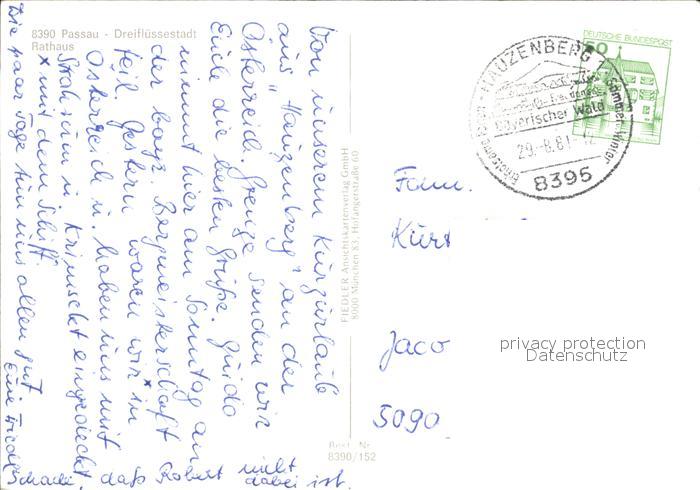 8390 Passau - Dreiflüssestadt
Rathaus
Von unserem Kurzurlaub
aus "Hauzenberg" an der
Österreich. Grenze senden wir
Euch die besten Grüße. Guido
nimmt hier am Sonntag an
der bayr. Bergmeisterschaft
teil. Gestern waren wir x in
Österreich u. haben uns mit
Stroh rum u. Krimsekt eingedeckt
x mit dem Schiff.
Die paar Tage tun uns allen gut
Eure
Schade, daß Robert nicht
dabei ist.
FIEDLER Ansichtskartenverlag GmbH
8000 München 83, Hofangerstraße 60
Best. Nr.
8390/152
DEUTSCHE BUNDESPOST
50
HAUZENBERG 1
Sommer Winter
Bayerischer Wald
29.-8.81-12
8395
Fam.
Kurt
Jaco
5090
privacy protection
Datenschutz